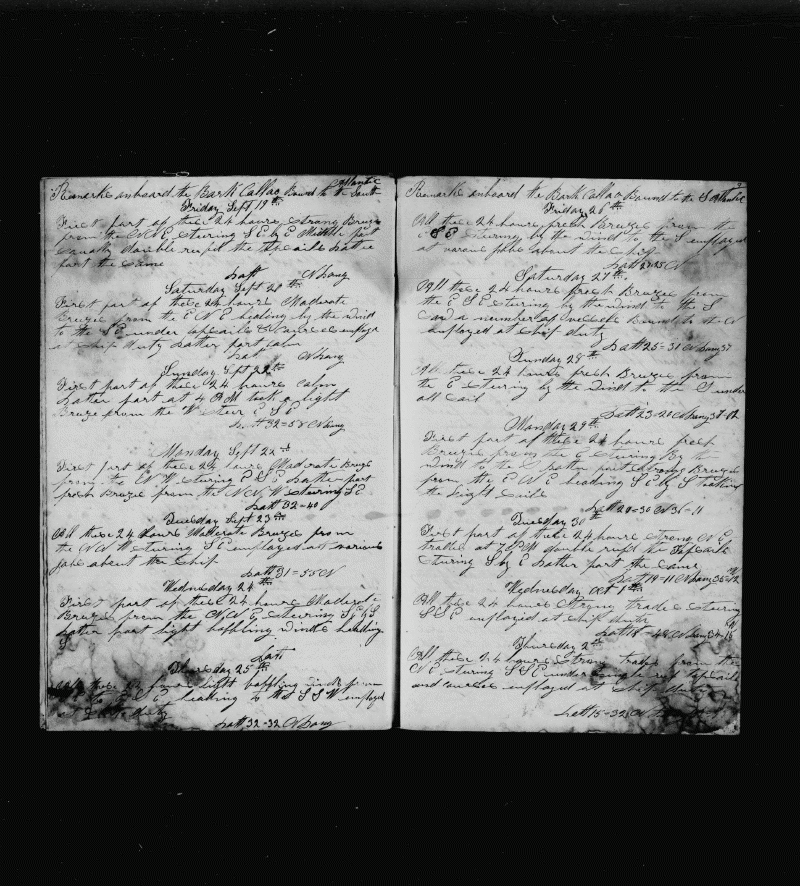 Remarks onboard the Bark Callao Bound to the South
Atlantic
Friday Sept 19th
First part of these 24 hours Strong Breeze
from the N E Stering S E by E Middle part
double reefed the topsails Latter
part the Same
Latt N Long
Saturday Sept 20th
First part of these 24 hours Moderate
Breeze from the E N E heading by the wind
to the S E under topsails employed
at Ship duty Latter part calm
Lat N Long
Sunday Sept 21st
First part of these 24 hours Calm
Latter part at 4 A M took a light
Breeze from the W Steer E S E
Latt 32=58 N Long
Monday Sept 22nd
First part of these 24 hours Moderate Breeze
from the N W Stering E S E Latter part
fresh Breeze from the N N W Stering S E
Latt 32=40
Tuesday Sept 23rd
All these 24 hours Moderate Breeze from
the N N W Stering S E employed at various
jobs about the Ship
Latt 31=55 N
Wednesday 24th
First part of these 24 hours Moderate
Breeze from the N W Stering S E by S
Latter part light baffling winds heading
S
Latt
Thursday 25th
All these 24 hours light baffling winds from
to E heading to the S S W employed
at Ship duty
Latt 32=32 N Long
Remarks onboard the Bark Callao Bound to the S Atlantic
Friday 26th
All these 24 hours fresh Breeze from the
S E Stering by the wind to the S employed
at various jobs about the Ship
Latt 27=25 N
Saturday 27th
All these 24 hours fresh Breeze from
the E S E Stering by the wind to the S
and a number of vessels Bound to the N
employed at Ship duty
Latt 25=31 N Long 37
Sunday 28th
All these 24 hours fresh Breeze from
the E Stering by the wind to the S under
all Sail
Latt 23=20 N Long 37=12
Monday 29th
First part of these 24 hours fresh
Breeze from the E Stering By the
wind to the S Latter part strong Breeze
from the E N E heading S E by S
the light Sails
Latt 20=30 N 36=11
Tuesday 30th
First part of these 24 hours Strong N E
trades at 7 P M double reefd the topsails
Stering S by E Latter part the Same
Latt 19=11 N Long 35=12
Wednesday Oct 1th
All these 24 hours Strong trades Stering
S S E employed at Ship duty
Latt 18=48 N Long
Thursday 2nd
All these 24 hours Strong trades from the
N E Stering S S E under double reef topsails
and courses employed at Ship duty
Latt 15=32 N